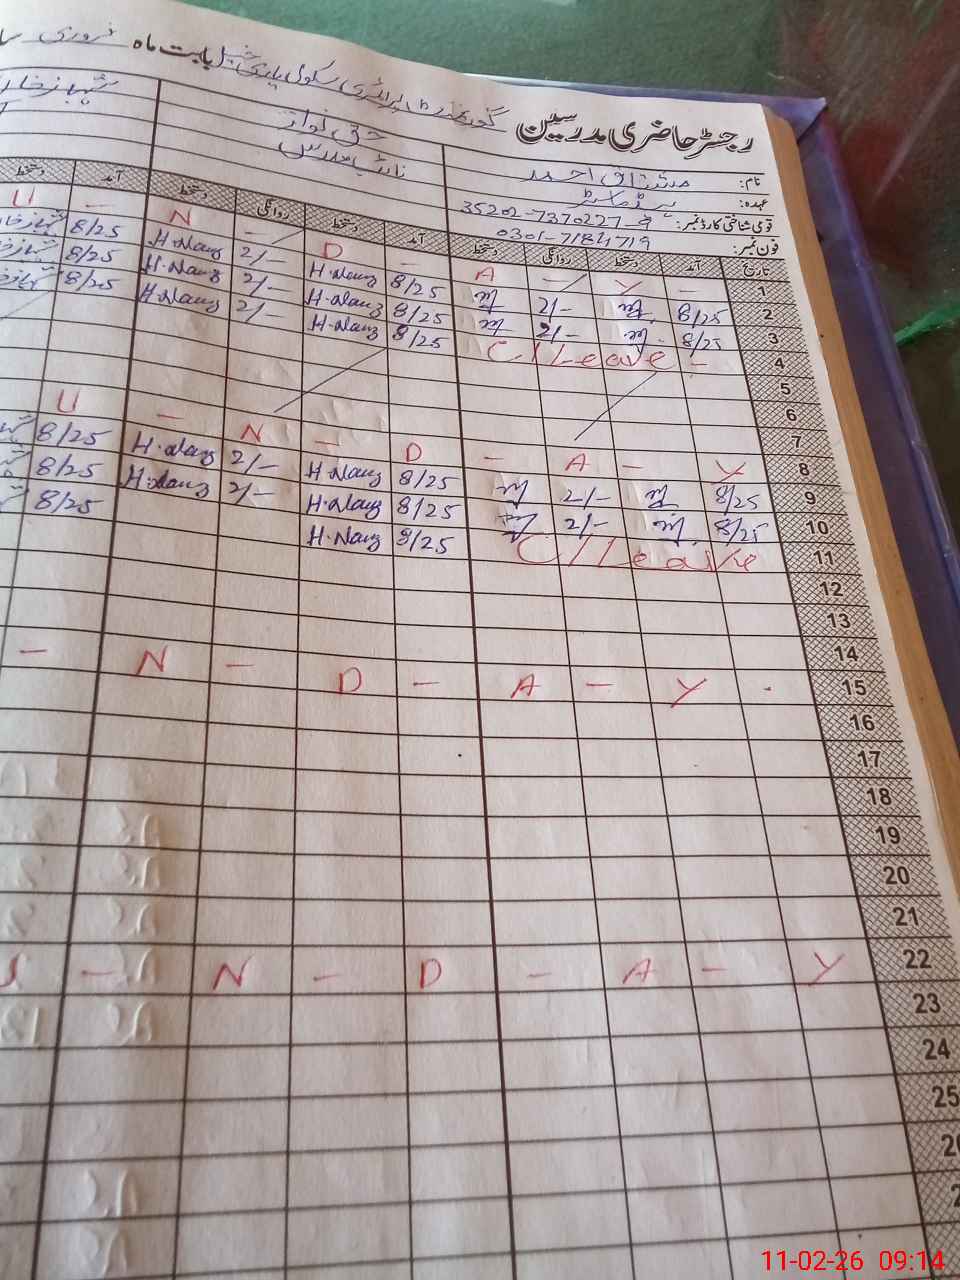 رجسٹر حاضری مدرسین گورنمنٹ پرائمری سکول بابت ماہ فروری
نام: مشتاق احمد حق نواز شہباز خان
عہدہ: ہیڈ ماسٹر نائب مدرس
قومی شناختی کارڈ نمبر: 35202-7370227-9
فون نمبر: 0301-7184719
تاریخ آمد دستخط روانگی دستخط آمد دستخط روانگی دستخط آمد دستخط
1 — Y — A — D — N — U
2 8/25 2/- 8/25 H.Nawz 2/- H.Nawz 8/25
3 8/25 2/- 8/25 H.Nawz 2/- H.Nawz 8/25
4 C/Leave - 8/25 H.Nawz 2/- H.Nawz 8/25
5
6
7
8 Y — A — D — N — U
9 8/25 2/- 8/25 H.Nawz 2/- H.Nawz 8/25
10 8/25 2/- 8/25 H.Nawz 2/- H.Nawz 8/25
11 C/Leave 8/25 H.Nawz 8/25
12
13
14
15 Y — A — D — N —
16
17
18
19
20
21
22 Y — A — D — N —
23
24
25
11-02-26 09:14